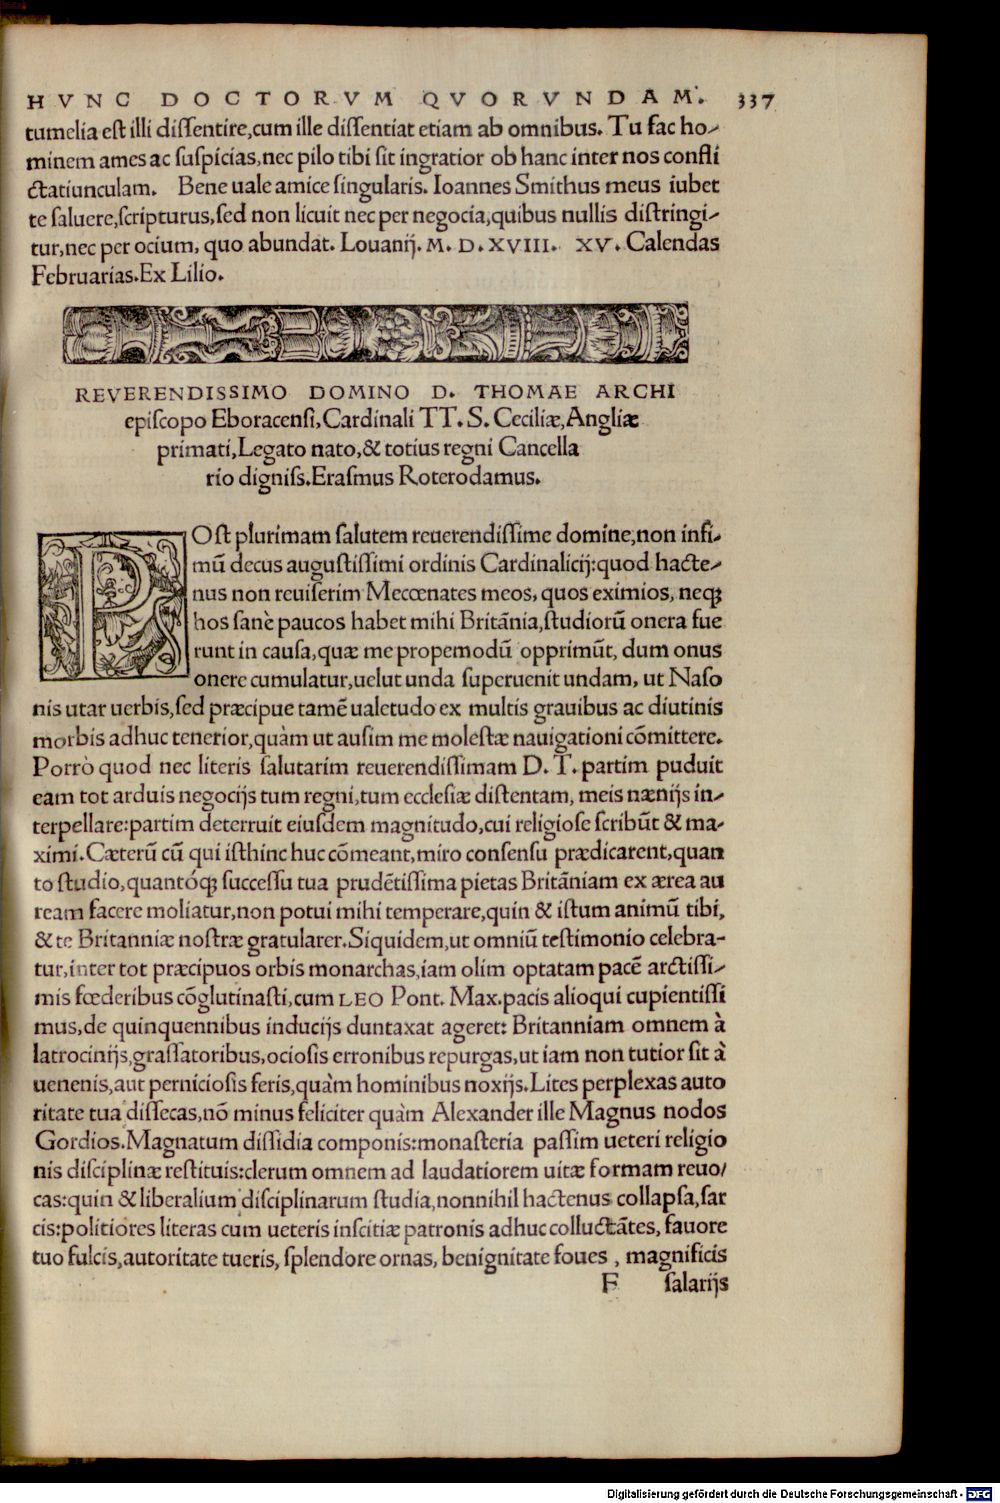 HVNC DOCTORVM QVORVNDAM. 337
tumelia est illi dissentire,cum ille dissentiat etiam ab omnibus. Tu fac ho-
minem ames ac suspicias,nec pilo tibi sit ingratior ob hanc inter nos confli
ctatiunculam. Bene uale amice singularis. Ioannes Smithus meus iubet
te saluere,scripturus,sed non licuit nec per negocia,quibus nullis distringi-
tur,nec per ocium, quo abundat. Louanij. M. D. XVIII. XV. Calendas
Februarias.Ex Lilio.
REVERENDISSIMO DOMINO D. THOMAE ARCHI
episcopo Eboracensi,Cardinali TT. S. Ceciliæ,Angliæ
primati,Legato nato,& totius regni Cancella
rio digniss.Erasmus Roterodamus.
POst plurimam salutem reuerendissime domine,non infi-
mū decus augustissimi ordinis Cardinalicij:quod hacte-
nus non reuiserim Mecœnates meos, quos eximios, neq;
hos sanè paucos habet mihi Britānia,studiorū onera fue
runt in causa,quæ me propemodū opprimūt, dum onus
onere cumulatur,uelut unda superuenit undam, ut Naso
nis utar uerbis,sed præcipue tamē ualetudo ex multis grauibus ac diutinis
morbis adhuc tenerior,quàm ut ausim me molestæ nauigationi cōmittere.
Porrò quod nec literis salutarim reuerendissimam D. T. partim puduit
eam tot arduis negocijs tum regni,tum ecclesiæ distentam, meis nænijs in-
terpellare:partim deterruit eiusdem magnitudo,cui religiose scribūt & ma-
ximi.Cæterū cū qui isthinc huc cōmeant,miro consensu prædicarent,quan
to studio,quantóq; successu tua prudētissima pietas Britāniam ex ærea au
ream facere moliatur,non potui mihi temperare,quin & istum animū tibi,
& te Britanniæ nostræ gratularer.Siquidem,ut omniū testimonio celebra-
tur,inter tot præcipuos orbis monarchas,iam olim optatam pacē arctissi-
mis fœderibus cōglutinasti,cum LEO Pont. Max.pacis alioqui cupientissi
mus,de quinquennibus inducijs duntaxat ageret: Britanniam omnem à
latrocinijs,grassatoribus,ociosis erronibus repurgas,ut iam non tutior sit à
uenenis,aut perniciosis feris,quàm hominibus noxijs.Lites perplexas auto
ritate tua dissecas,nō minus feliciter quàm Alexander ille Magnus nodos
Gordios.Magnatum dissidia componis:monasteria passim ueteri religio
nis disciplinæ restituis:clerum omnem ad laudatiorem uitæ formam reuo/
cas:quin & liberalium disciplinarum studia,nonnihil hactenus collapsa,sar
cis:politiores literas cum ueteris inscitiæ patronis adhuc colluctātes, fauore
tuo fulcis,autoritate tueris, splendore ornas, benignitate foues , magnificis
F salarijs
Digitalisierung gefördert durch die Deutsche Forschungsgemeinschaft - DFG